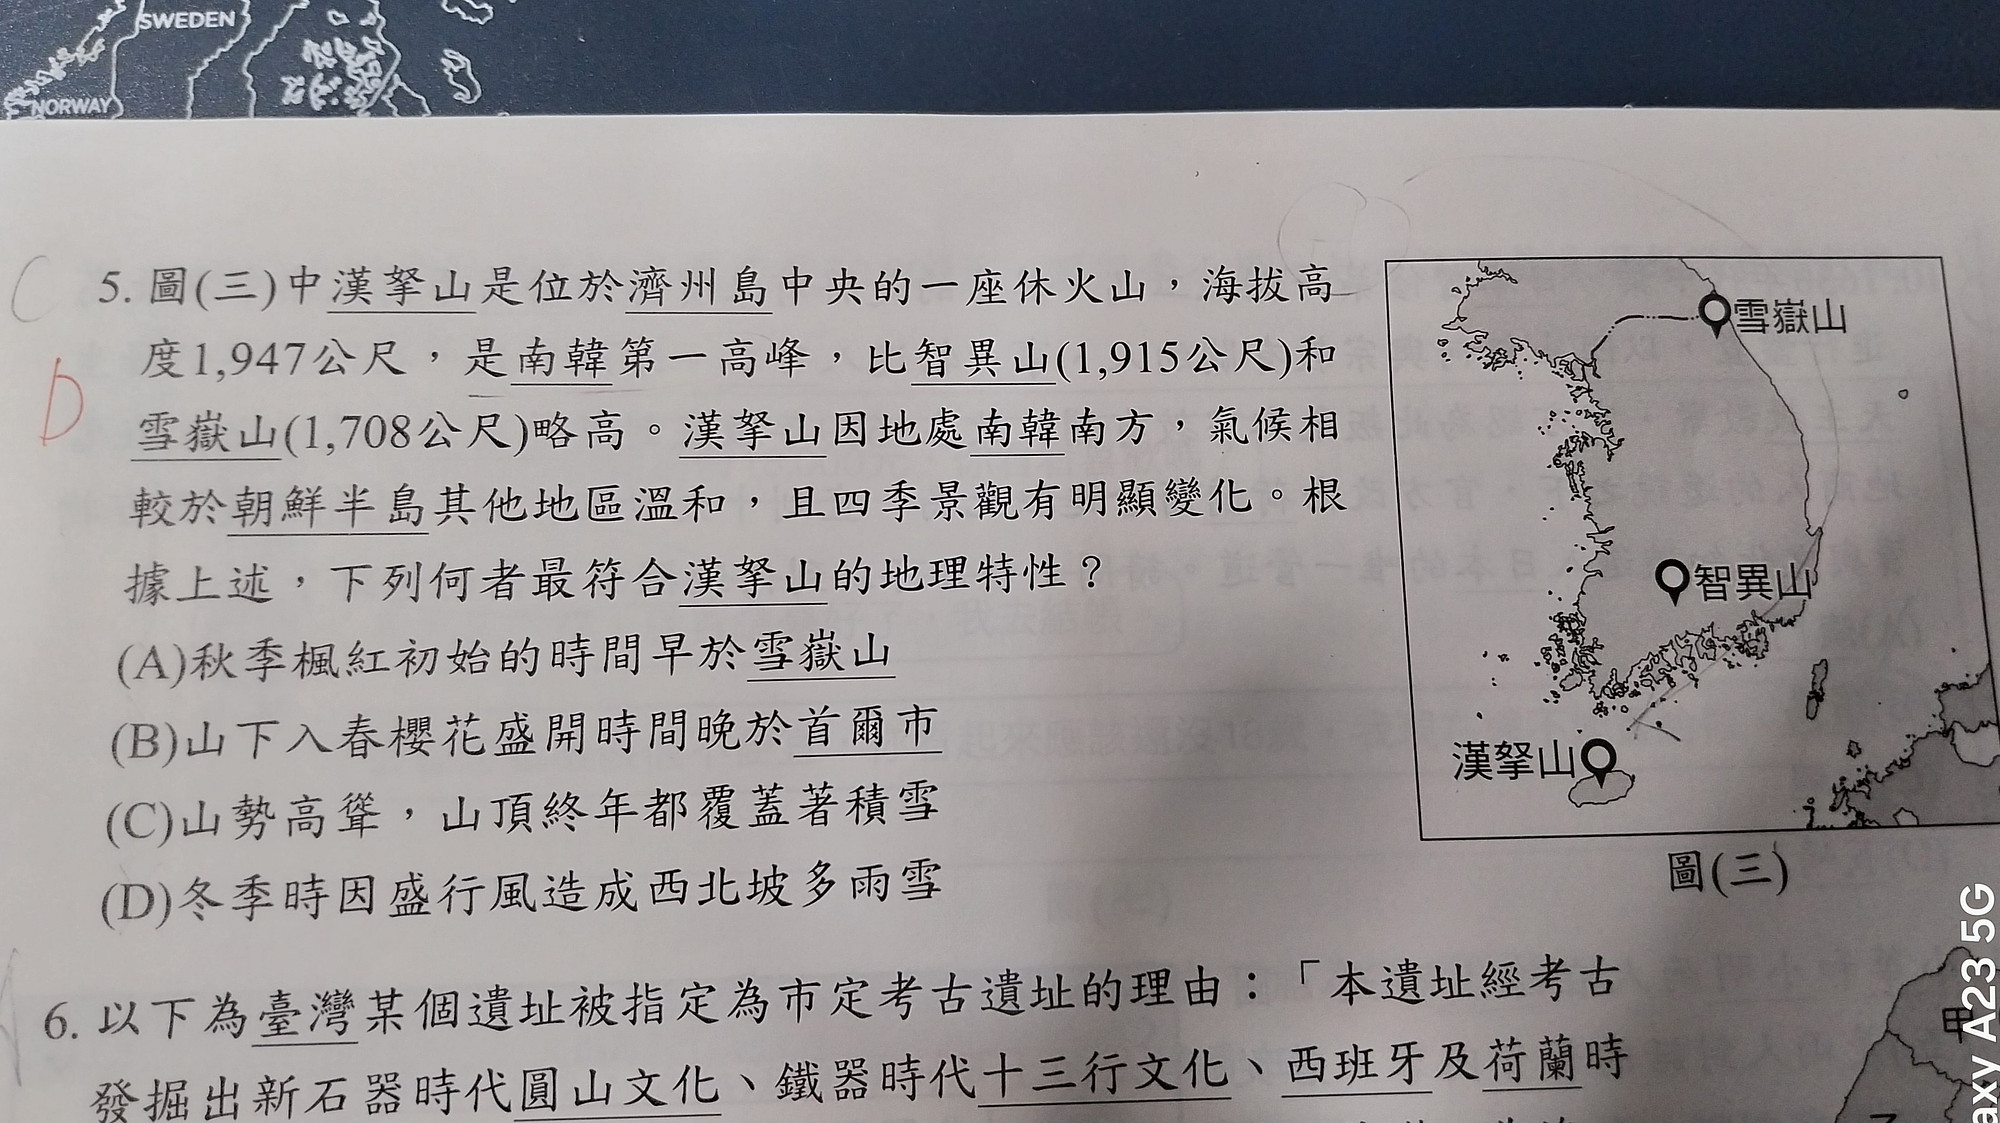 SWEDEN
NORWAY
C
D
5. 圖(三)中漢拏山是位於濟州島中央的一座休火山，海拔高
度1,947公尺，是南韓第一高峰，比智異山(1,915公尺)和
雪嶽山(1,708公尺)略高。漢拏山因地處南韓南方，氣候相
較於朝鮮半島其他地區溫和，且四季景觀有明顯變化。根
據上述，下列何者最符合漢拏山的地理特性？
(A)秋季楓紅初始的時間早於雪嶽山
(B)山下入春櫻花盛開時間晚於首爾市
(C)山勢高聳，山頂終年都覆蓋著積雪
(D)冬季時因盛行風造成西北坡多雨雪
雪嶽山
智異山
漢拏山
圖(三)
6. 以下為臺灣某個遺址被指定為市定考古遺址的理由：「本遺址經考古
發掘出新石器時代圓山文化、鐵器時代十三行文化、西班牙及荷蘭時
甲
axy A23 5G